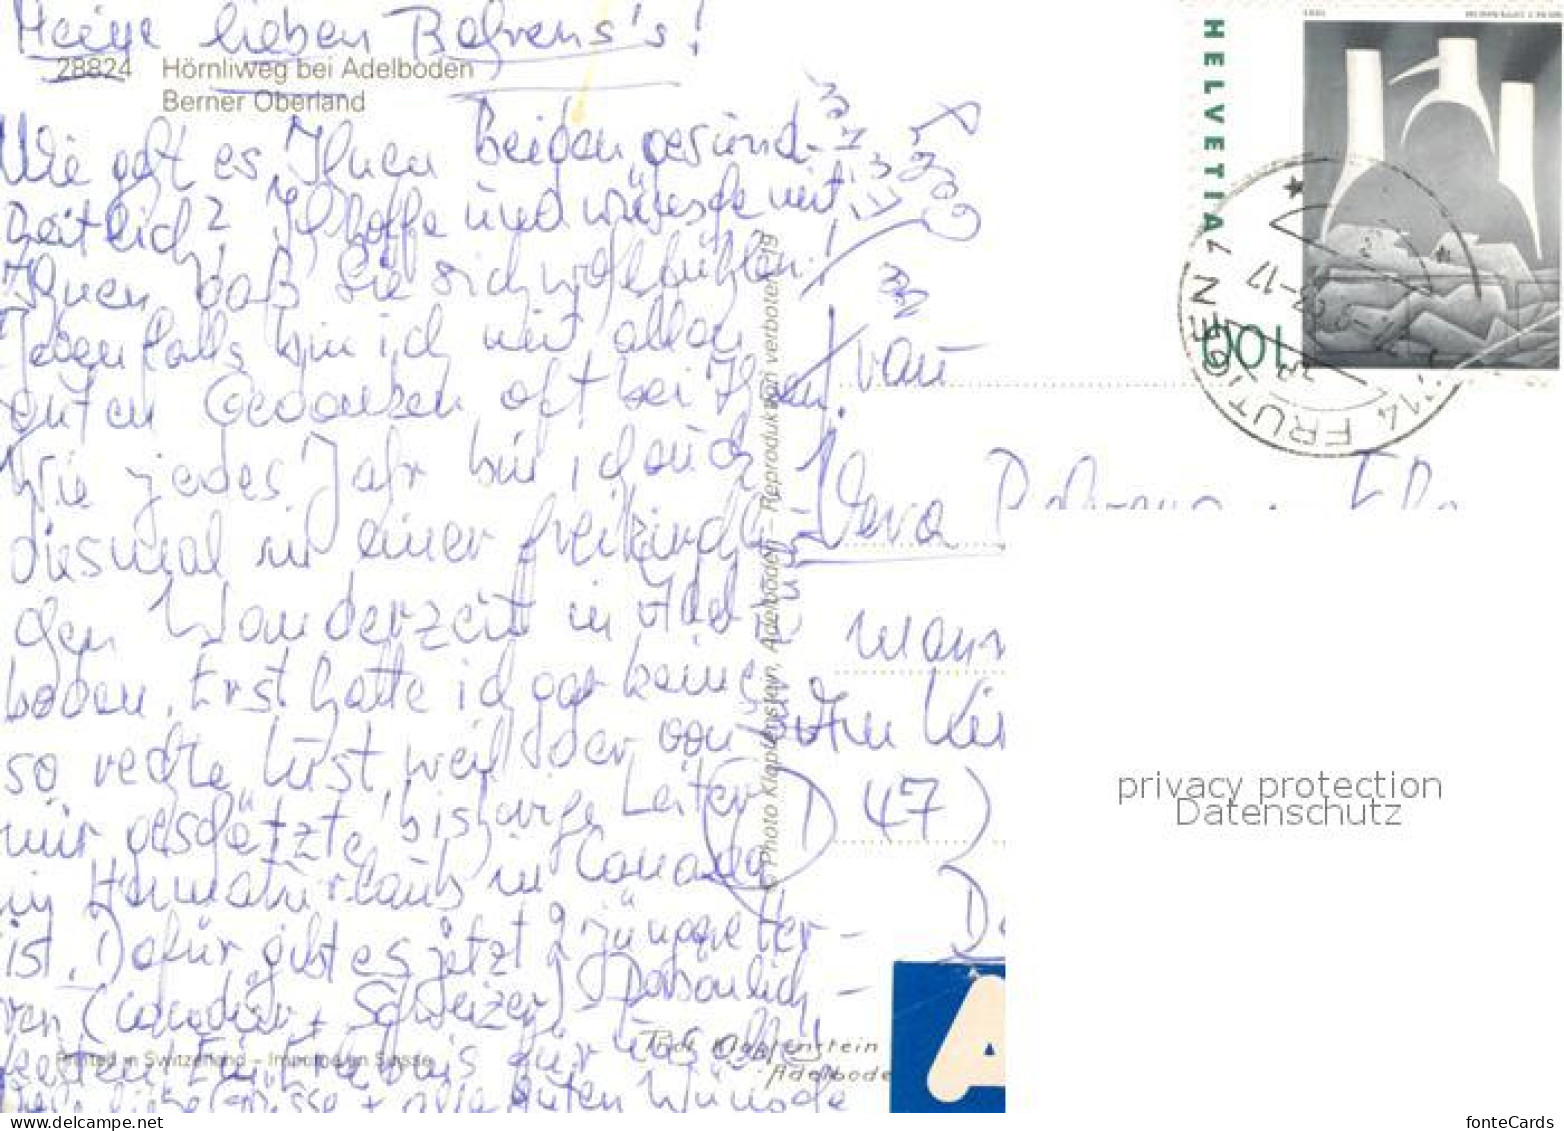 Meine lieben Behrens's!
28824 Hörnliweg bei Adelboden
Berner Oberland
Wie geht es Ihnen beiden gesund-
heitlich? Ich hoffe und wünsche mit
Ihnen, daß Sie sich wohlfühlen!
Jedenfalls bin ich mit allen
guten Gedanken oft bei Ihnen.
Wie jedes Jahr bin ich auch
diesmal in einer freikirchli-
chen Wanderzeit in Adel-
boden. Erst hatte ich gar keine
so rechte Lust, weil der von
mir geschätzte, bisherige Leiter
im Heimaturlaub in Canada
ist. Dafür gibt es jetzt 2 jüngere Her-
ren (Canadier + Schweizer) Persönlich-
keiten. Ein Erlebnis für uns alle!
liebe Grüsse + alle guten Wünsche
Printed in Switzerland – Imprimé en Suisse
© Photo Klopfenstein, Adelboden – Reproduktion verboten
Phot Klopfenstein
Adelbode
HELVETIA
100
FRUTIGEN 1
-17
Frau
Vera Behrens
(47)
D
A
privacy protection
Datenschutz
www.delcampe.net
fonteCards